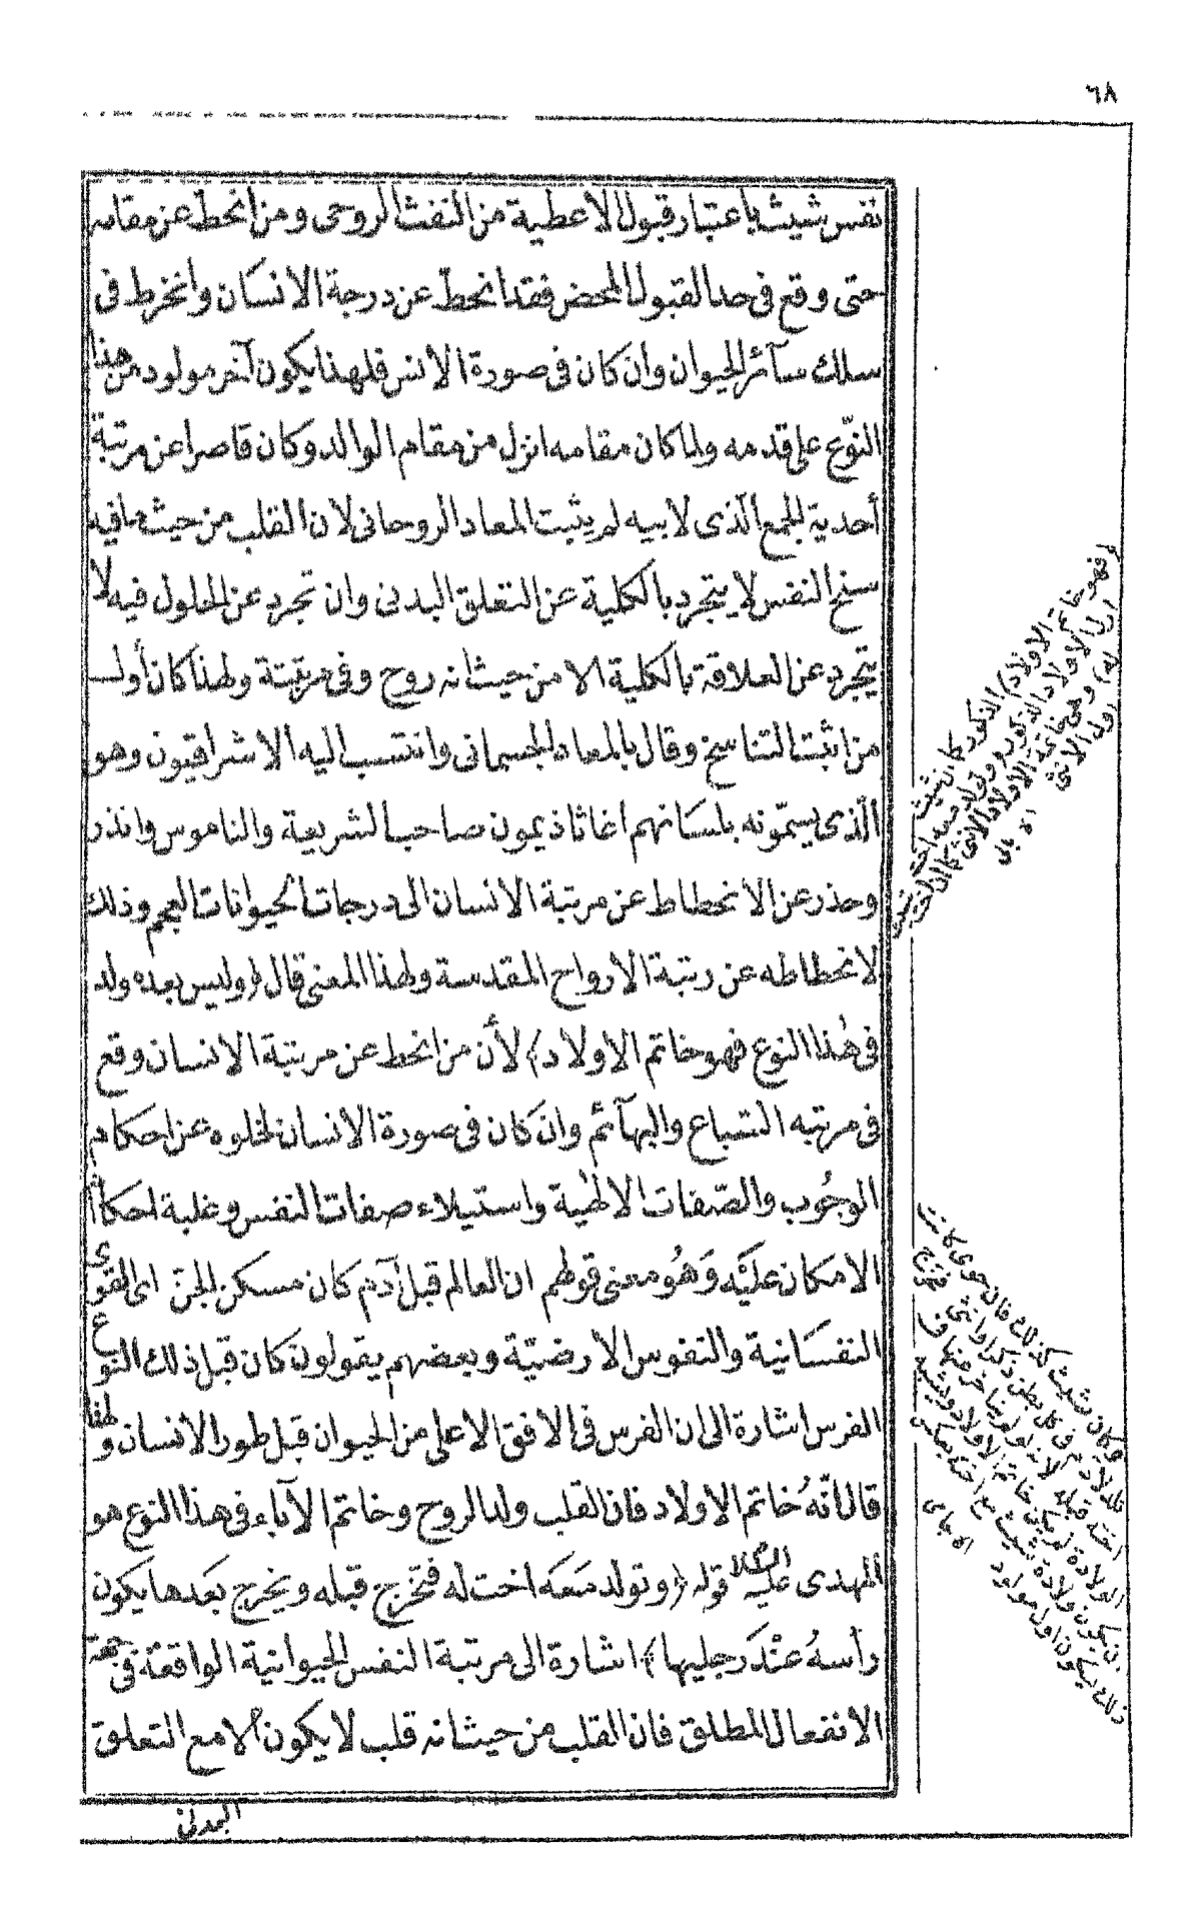 ٦٨
نفس شيث باعتبار قبول الاعطية من النفث الروحى ومن انحط عن مقامه
حتى وقع فى حد القبول المحض فقد انحط عن درجة الانسان وانخرط فى
سلك سآئر الحيوان وان كان فى صورة الانس فلهذا يكون آخر مولود من هذا
النّوع على قدمه ولما كان مقامه انزل من مقام الوالد وكان قاصرا عن مرتبة
أحدية الجمع الّذى لابيه لم يثبت المعاد الروحانى لان القلب من حيث ما فيه
سنخ النفس لا يتجرد بالكلية عن التعلق البدنى وان تجرد عن الحلول فيه لا
يتجرد عن العلاقة بالكلية الا من حيث انه روح وفى مرتبتة ولهذا كان أول
من اثبت التناسخ وقال بالمعاد الجسمانى وانتسب اليه الاشراقيون وهو
الّذى يسمّونه بلسانهم اغاثاذيمون صاحب الشريعة والناموس وانذر
وحذر عن الانحطاط عن مرتبة الانسان الى درجات الحيوانات العجم وذلك
لانحطاطه عن رتبة الارواح المقدسة ولهذا المعنى قال (وليس بعده ولد
فى هذا النوع فهو خاتم الاولاد) لأن من انحط عن مرتبة الانسان وقع
فى مرتبه السّباع والبهآئم وان كان فى صورة الانسان لخلوه عن احكام
الوجُوب والصّفات الالهٰية واستيلاء صفات النفس وغلبة احكام
الامكان عليَّه وَهُو معنى قولهم ان العالم قبل آدم كان مسكن الجنّ اى القوى
النفسَانية والنفوس الارضيّة وبعضهم يقولون كان قبل ذلك النوع
الفرس اشارة الى ان الفرس فى الافق الاعلى من الحيوان قبل طور الانسان ولهذا
قال انّهُ خاتم الاولاد فان القلب ولد الروح وخاتم الآباء فى هذا النوع هو
المهدى عليه السلام قوله (وتولد مَعَه اخت له فتخرج قبله ويخرج بعَدها يكون
رأسهُ عنْدَ رجليها) اشارة الى مرتبة النفس الحيوانية الواقعة فى جهة
الانفعال المطلق فان القلب من حيث انه قلب لا يكون الا مع التعلق
البدنى
(فهو خاتم الاولاد) الذكور كما ان شيث
اول الاولاد الذكور وتولد معه اخت
له) وهى خاتمة الاولاد الانثى كما ان اخت شيث
اول الانثى اه بالى
وكان شيث كذلك فان حوى كانت
تلد لآدم فى كل بطن ذكرا وانثى فتخرج
اخته قبله لانه لو
الولادة لم يكن خاتم الاولاد ويشبه
ان يكون ولادة شيث مع اخته بعكس
ذلك ليكون اول مولود اه جامى